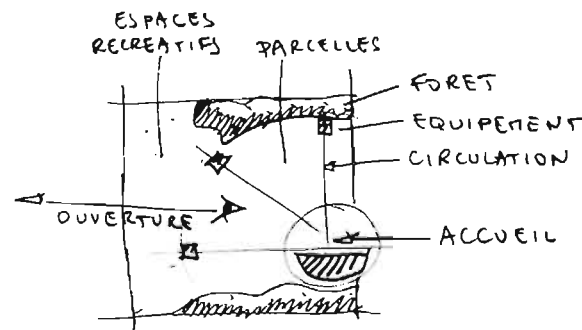 ESPACES
RECREATIFS
PARCELLES
FORET
EQUIPEMENT
CIRCULATION
OUVERTURE
ACCUEIL